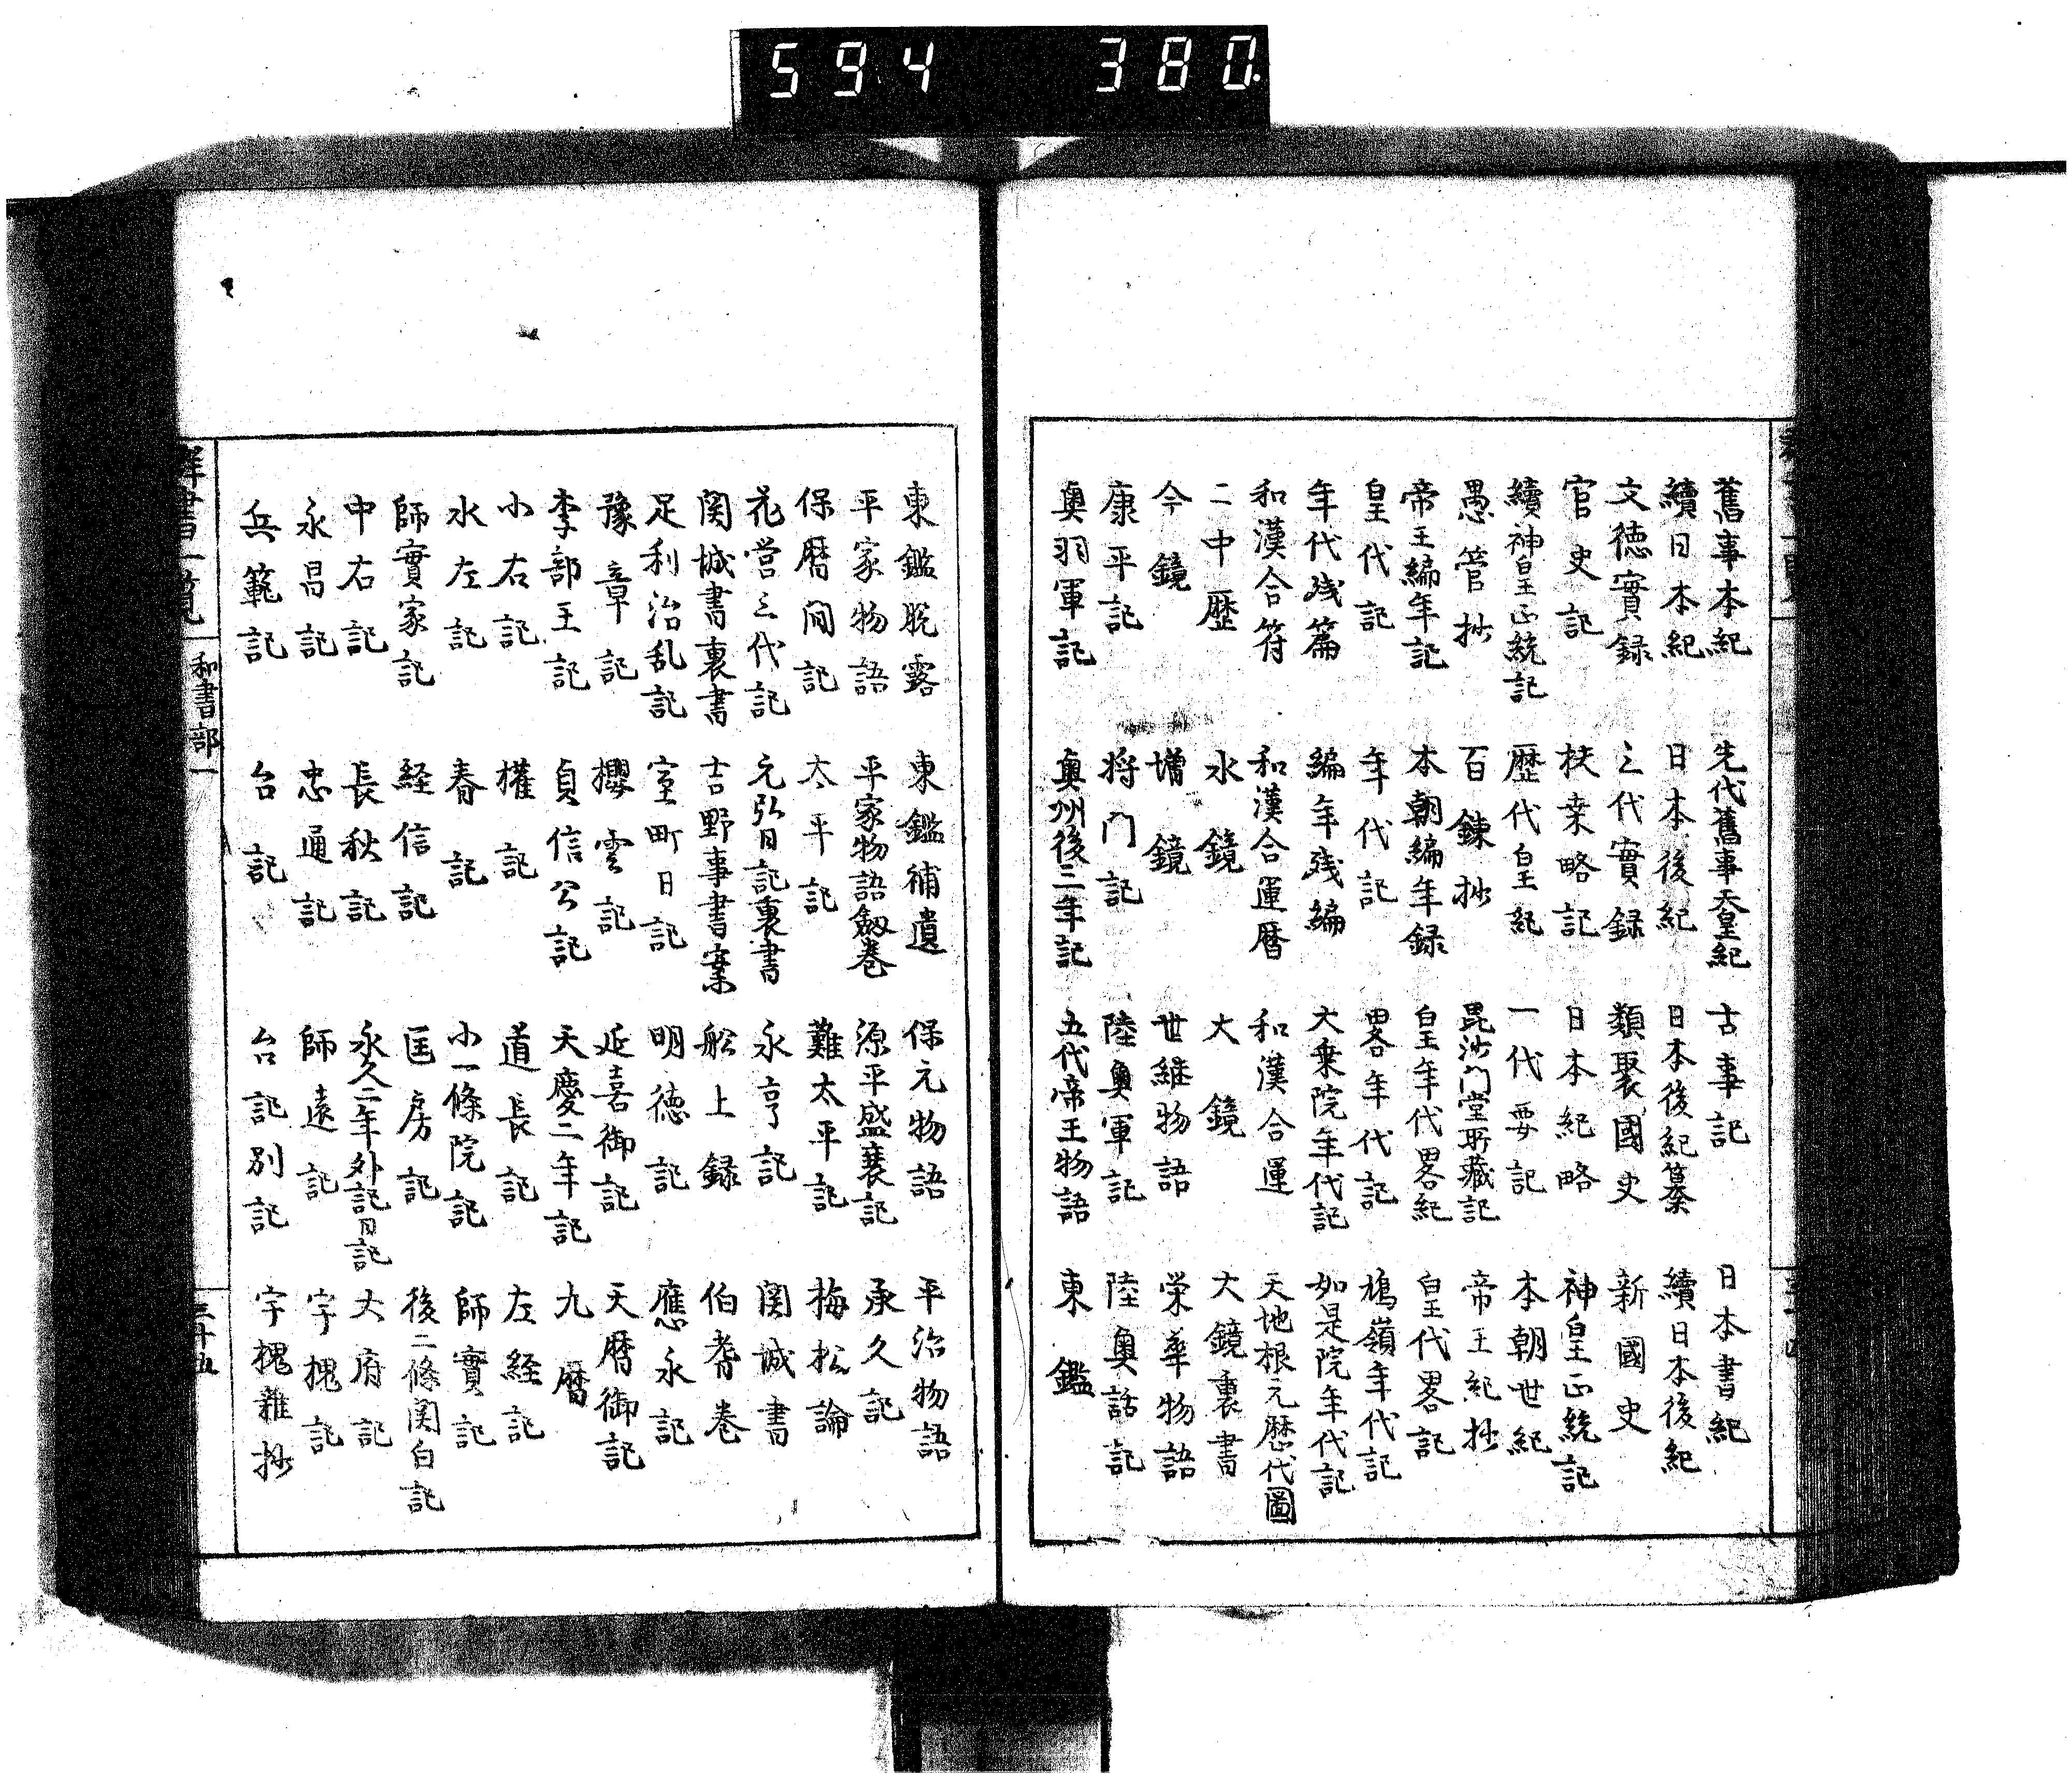 594 380.
舊事本紀 先代舊事天皇紀 古事記 日本書紀
續日本紀 日本後紀 日本後紀纂 續日本後紀
文徳實録 三代實録 類聚國史 新國史
官史記 扶桒略記 日本紀略 神皇正統記
續神皇正統記 歴代皇紀 一代要記 本朝世紀
愚管抄 百錬抄 毘沙門堂所藏記 帝王紀抄
帝王編年記 本朝編年録 皇年代畧紀 皇代畧記
皇代記 年代記 畧年代記 鳩嶺年代記
年代残篇 編年残編 大乗院年代記 如是院年代記
和漢合符 和漢合運暦 和漢合運 天地根元歴代圖
二中歴 水鏡 大鏡 大鏡裏書
今鏡 増鏡 世継物語 栄華物語
康平記 将門記 陸奥軍記 陸奥話記
奥羽軍記 奥州後三年記 五代帝王物語 東鑑
東鑑脱露 東鑑補遺 保元物語 平治物語
平家物語 平家物語劔巻 源平盛衰記 承久記
保暦間記 太平記 難太平記 梅松論
花営三代記 元弘日記裏書 永享記 関城書
関城書裏書 吉野事書案 舩上録 伯耆巻
足利治乱記 室町日記 明徳記 應永記
豫章記 櫻雲記 延喜御記 天暦御記
李部王記 貞信公記 天慶二年記 九暦
小右記 權記 道長記 左経記
水左記 春記 小一條院記 師實記
師實家記 経信記 匡房記 後二條関白記
中右記 長秋記 永久二年外記日記 大府記
永昌記 忠通記 師遠記 宇槐記
兵範記 台記 台記別記 宇槐雜抄
群書一覧 和書部一 三十五